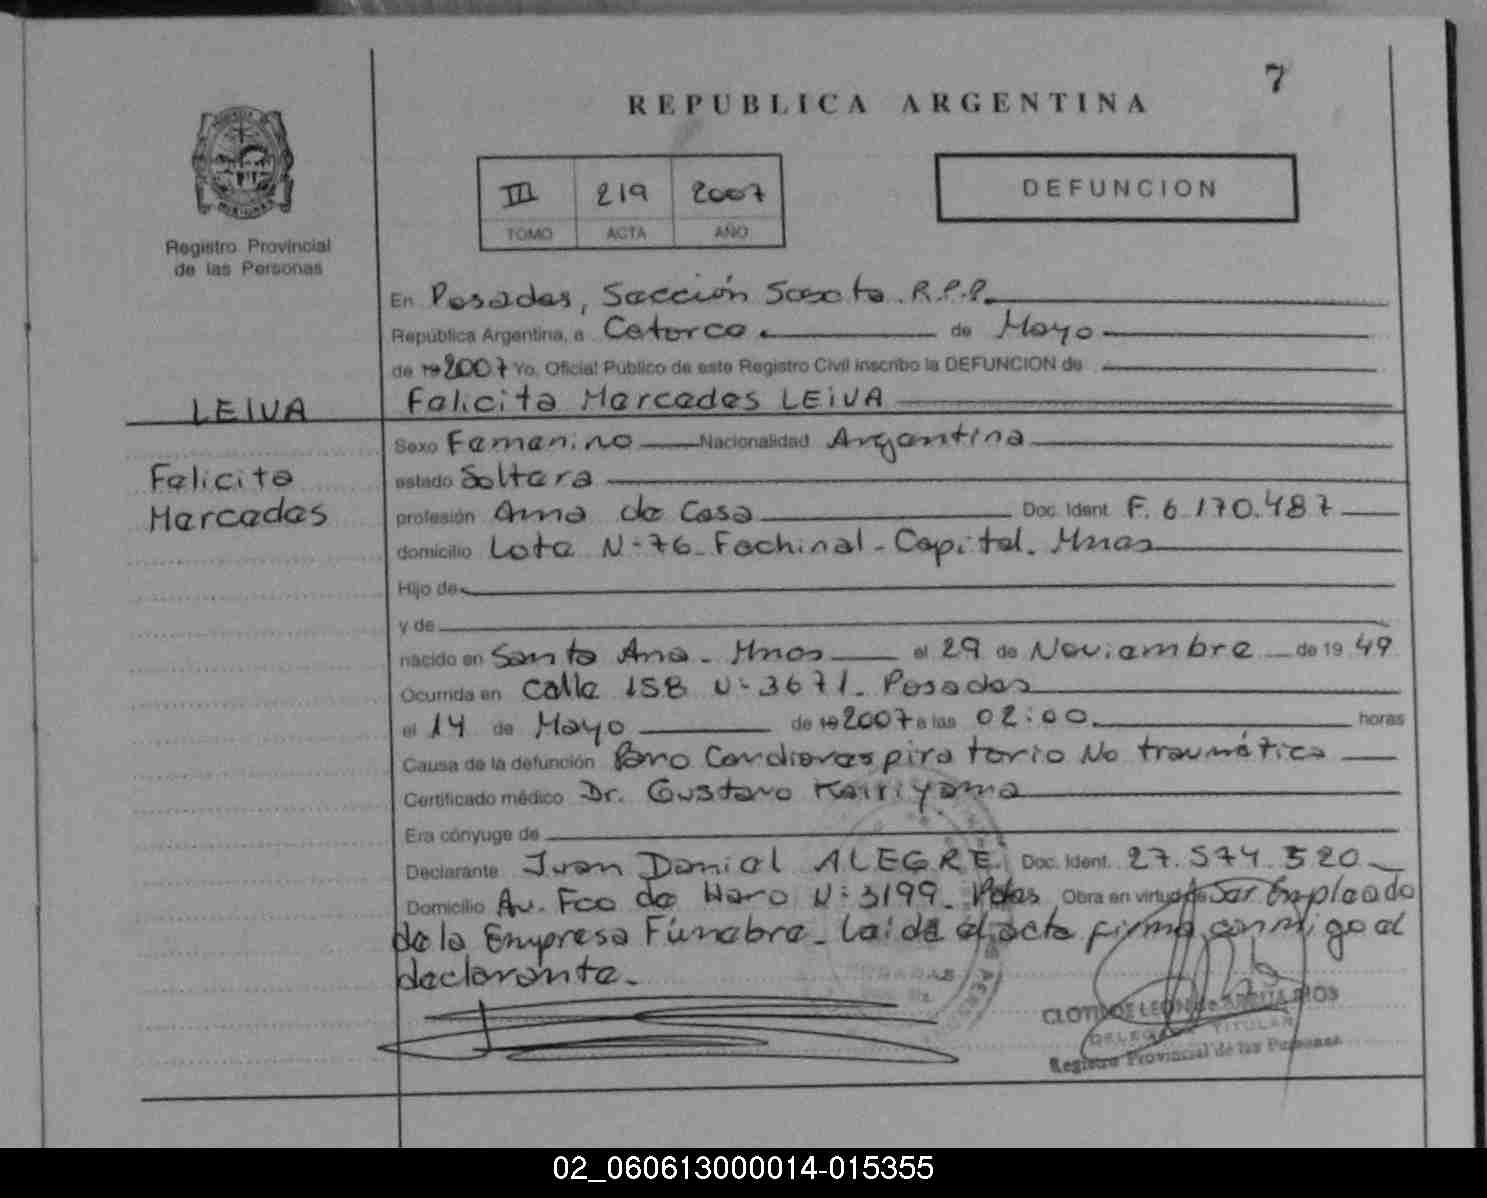 7
REPUBLICA ARGENTINA
III 219 2007
TOMO ACTA AÑO
DEFUNCION
Registro Provincial
de las Personas
En Posadas, Sección Sexta R.P.P.
República Argentina, a Catorce de Mayo
de 19 2007 Yo, Oficial Público de este Registro Civil inscribo la DEFUNCION de
LEIVA
Felicita Mercedes LEIVA
Sexo Femenino Nacionalidad Argentina
Felicita
Mercedes
estado Soltera
profesión Ama de Casa Doc. Ident. F. 6.170.487
domicilio Lote N=76. Fachinal - Capital. Mnes
Hijo de
y de
nacido en Santa Ana - Mnes el 29 de Noviembre de 19 49
Ocurrida en Calle 158 N=3671. Posadas
el 14 de Mayo de 19 2007 a las 02:00 horas
Causa de la defunción Paro Cardiorespiratorio No traumática
Certificado médico Dr. Gustavo Kairiyama
Era cónyuge de
Declarante Juan Daniel ALEGRE Doc. Ident. 27.574.520
Domicilio Av. Fco de Haro N=3199. Pdas Obra en virtud de Ser Empleado
de la Empresa Fúnebre. Leída el acta firma conmigo el
declarante.
CLOTILDE LEON de RIOS
DELEGADA TITULAR
Registro Provincial de las Personas
POSADAS
02_060613000014-015355